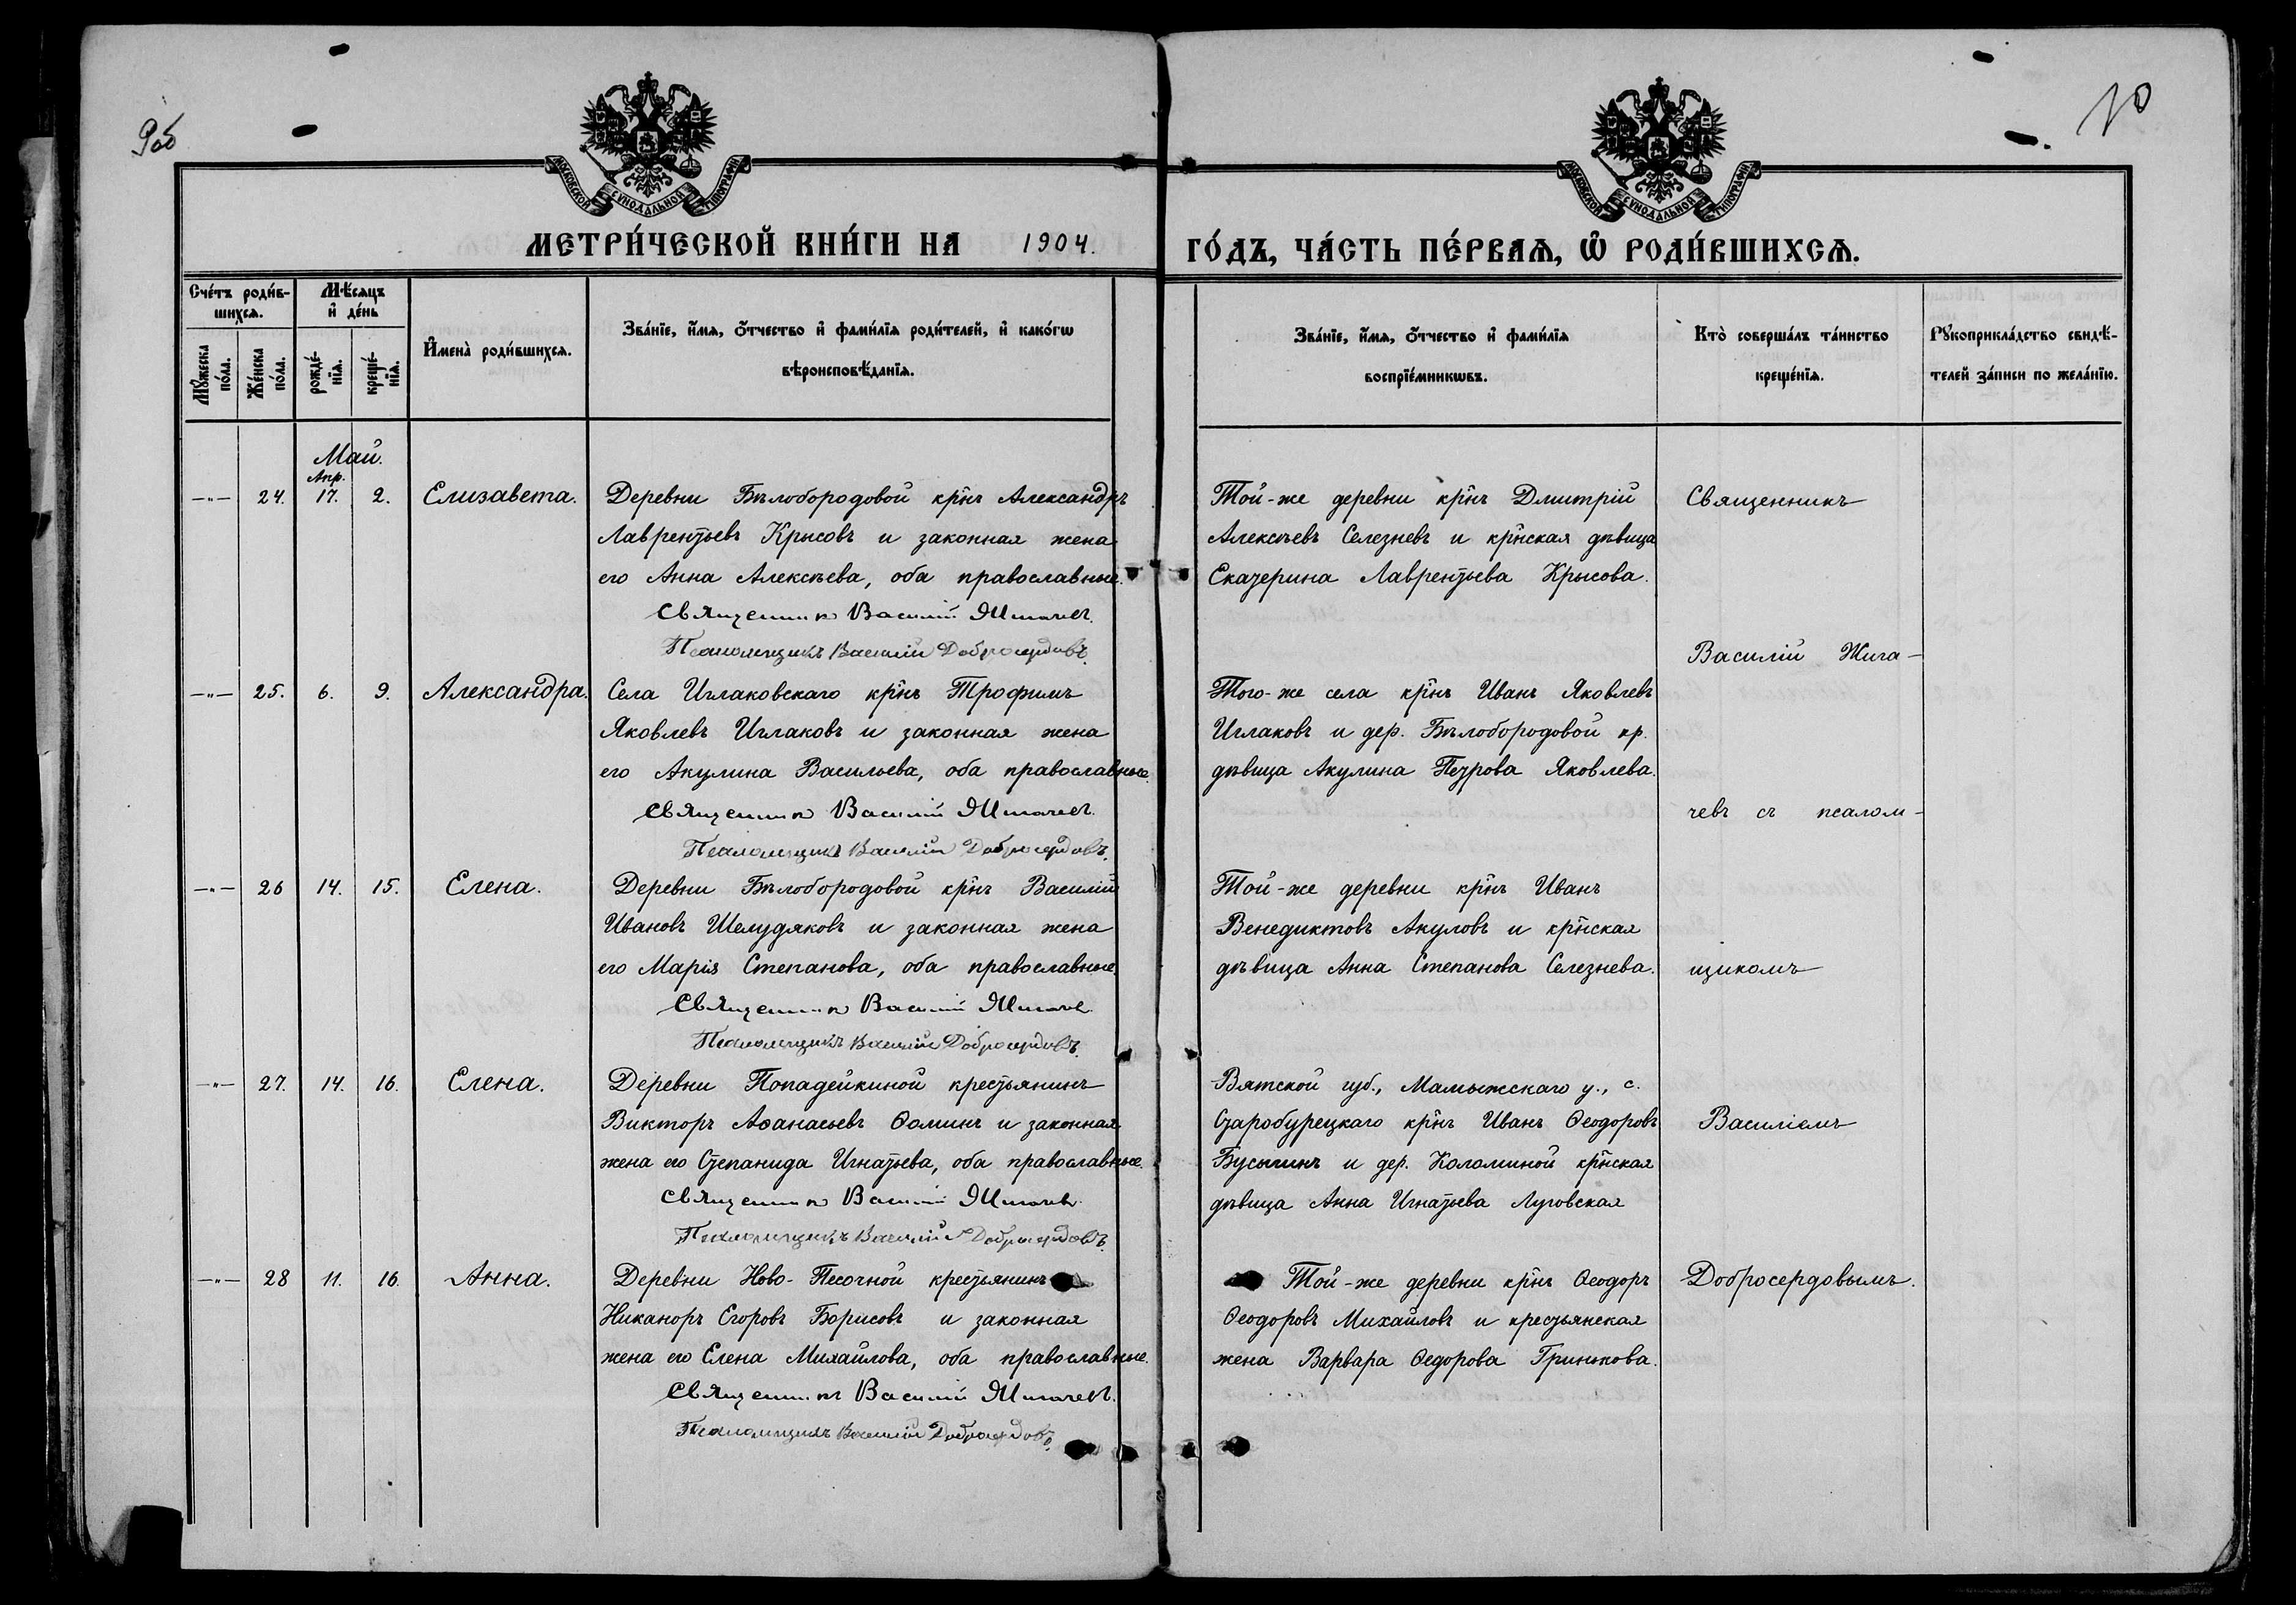 9об
10
МОСКОВСКОЙ СУНОДАЛЬНОЙ ТИПОГРАФІИ
МОСКОВСКОЙ СУНОДАЛЬНОЙ ТИПОГРАФІИ
МЕТРИ́ЧЕСКОЙ КНИ́ГИ НА 1904. ГО́ДЪ, ЧА́СТЬ ПЕ́РВАѦ, Ѽ РОДИ́ВШИХСѦ.
Сче́тъ роди́в-
шихсѧ.
Мѣ́сѧцъ
и҆ де́нь
Мꙋ́жеска по́ла.
Же́нска по́ла.
рожде́-
нїѧ.
креще́-
нїѧ.
И҆мена̀ роди́вшихсѧ.
Зва́нїе, и҆́мѧ, о҆́тчество и҆ фами́лїѧ роди́телей, и҆ како́гѡ
вѣроисповѣ́данїѧ.
Зва́нїе, и҆́мѧ, о҆́тчество и҆ фами́лїѧ
воспрїе́мникѡвъ.
Кто̀ соверша́лъ та́инство
креще́нїѧ.
Рꙋкоприкла́дство свидѣ́-
телей за́писи по жела́нїю.
Май.
Апр.
—"— 24. 17. 2. Елизавета. Деревни Бѣлобородовой кр̃нъ Александръ
Лаврентьевъ Крысовъ и законная жена
его Анна Алексѣева, оба православные.
Священникъ Василій Жигачевъ.
Псаломщикъ Василій Добросердовъ.
Той-же деревни кр̃нъ Дмитрій
Алексѣевъ Селезневъ и кр̃нская дѣвица
Екатерина Лаврентьева Крысова.
Священникъ
Василій Жига-
—"— 25. 6. 9. Александра. Села Иглаковскаго кр̃нъ Трофимъ
Яковлевъ Иглаковъ и законная жена
его Акулина Васильева, оба православные.
Священникъ Василій Жигачевъ.
Псаломщикъ Василій Добросердовъ.
Того-же села кр̃нъ Иванъ Яковлевъ
Иглаковъ и дер. Бѣлобородовой кр.
дѣвица Акулина Петрова Яковлева.
чевъ съ псалом-
—"— 26 14. 15. Елена. Деревни Бѣлобородовой кр̃нъ Василій
Ивановъ Шелудяковъ и законная жена
его Марія Степанова, оба православные.
Священникъ Василій Жигачев.
Псаломщикъ Василій Добросердовъ.
Той-же деревни кр̃нъ Иванъ
Венедиктовъ Акуловъ и кр̃нская
дѣвица Анна Степанова Селезнева.
щикомъ
—"— 27. 14. 16. Елена. Деревни Попадейкиной крестьянинъ
Викторъ Аѳанасьевъ Ѳоминъ и законная
жена его Степанида Игнатьева, оба православные.
Священникъ Василій Жигачев.
Псаломщикъ Василій Добросердовъ.
Вятской губ., Малмыжскаго у., с.
Старобурецкаго кр̃нъ Иванъ Ѳеодоровъ
Бусыгинъ и дер. Коломиной кр̃нская
дѣвица Анна Игнатьева Луговская
Василіемъ
—"— 28 11. 16. Анна. Деревни Ново-Песочной крестьянинъ
Никаноръ Егоровъ Борисовъ и законная
жена его Елена Михайлова, оба православные.
Священникъ Василій Жигачевъ.
Псаломщикъ Василій Добросердовъ.
Той-же деревни кр̃нъ Ѳеодоръ
Ѳеодоровъ Михайловъ и крестьянская
жена Варвара Ѳедорова Гринькова.
Добросердовымъ.